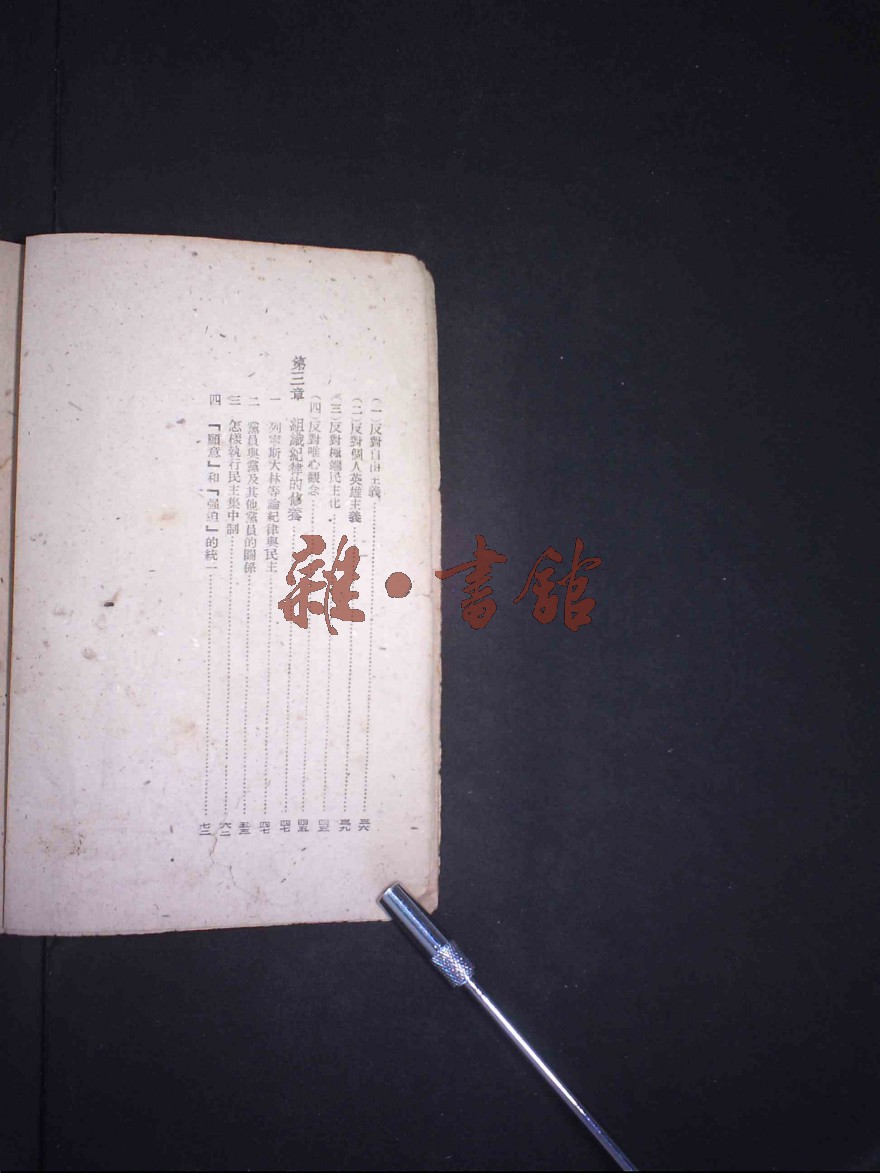 (一)反對自由主義……三六
(二)反對個人英雄主義……三九
(三)反對極端民主化……四三
(四)反對唯心觀念……四五
第三章 組織紀律的修養……四七
一 列寧斯大林等論紀律與民主……四七
二 黨員與黨及其他黨員的關係……五三
三 怎樣執行民主集中制……六二
四 『願意』和『强迫』的統一……七二
雜·書館